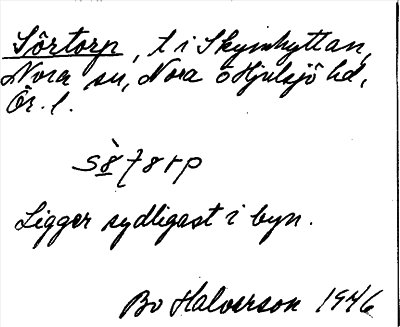 Sörtorp, t i Skrinhyttan,
Nora sn, Nora o Hjulsjö hd,
Ör. l.
Ligger sydligast i byn.
Bo Halverson 1946